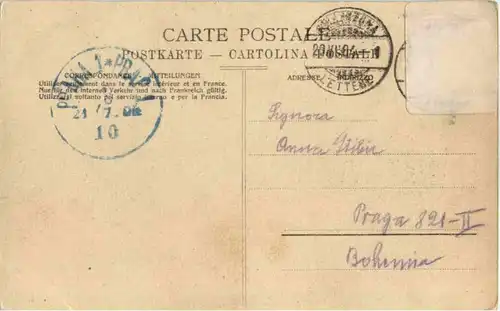 CARTE POSTALE
POSTKARTE - CARTOLINA POSTALE
CORRESPONDANCE - MITTEILUNGEN
ADRESSE - INDIRIZZO
Utilisable seulement dans le service intérieur et en France.
Nur für den internen Verkehr und nach Frankreich gültig.
Utilizzato soltanto per servizio interno e per la Francia.
BELLINZONA
LETTERE
PRAHA 1 * PRAG 1
10
Signora
Anna
Praga 821-II
Bohemia